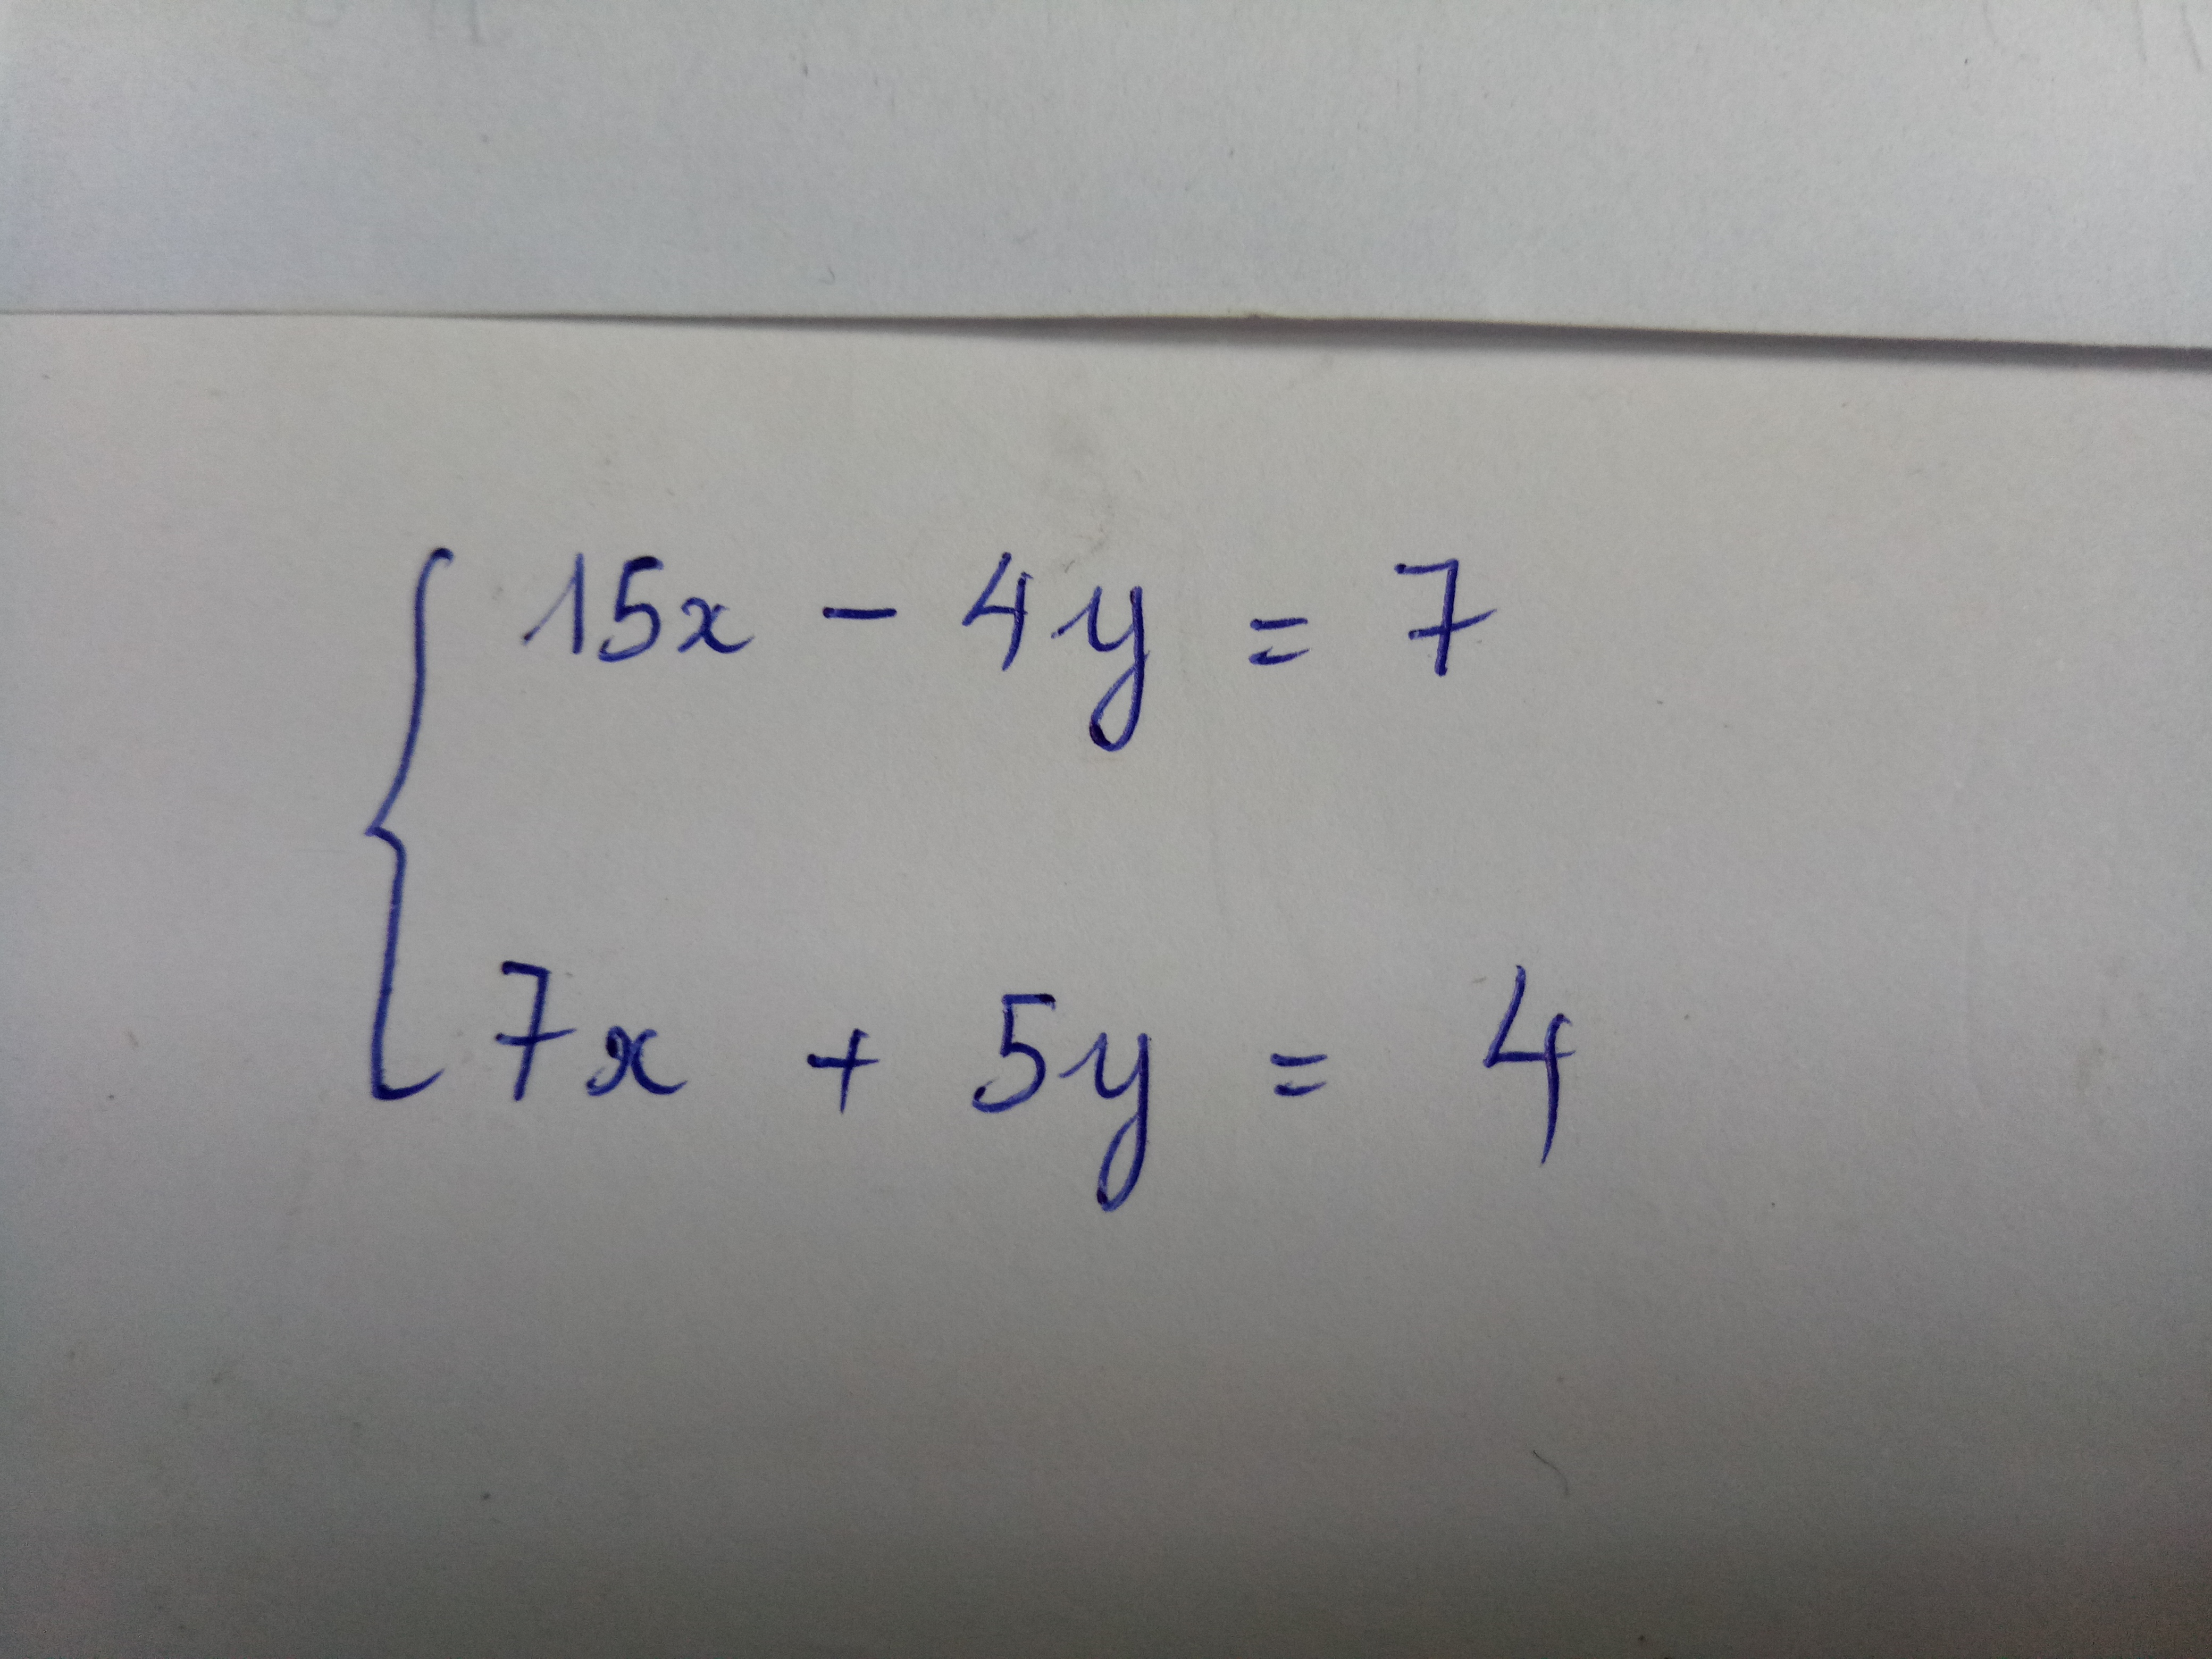 15x - 4y = 7
7x + 5y = 4